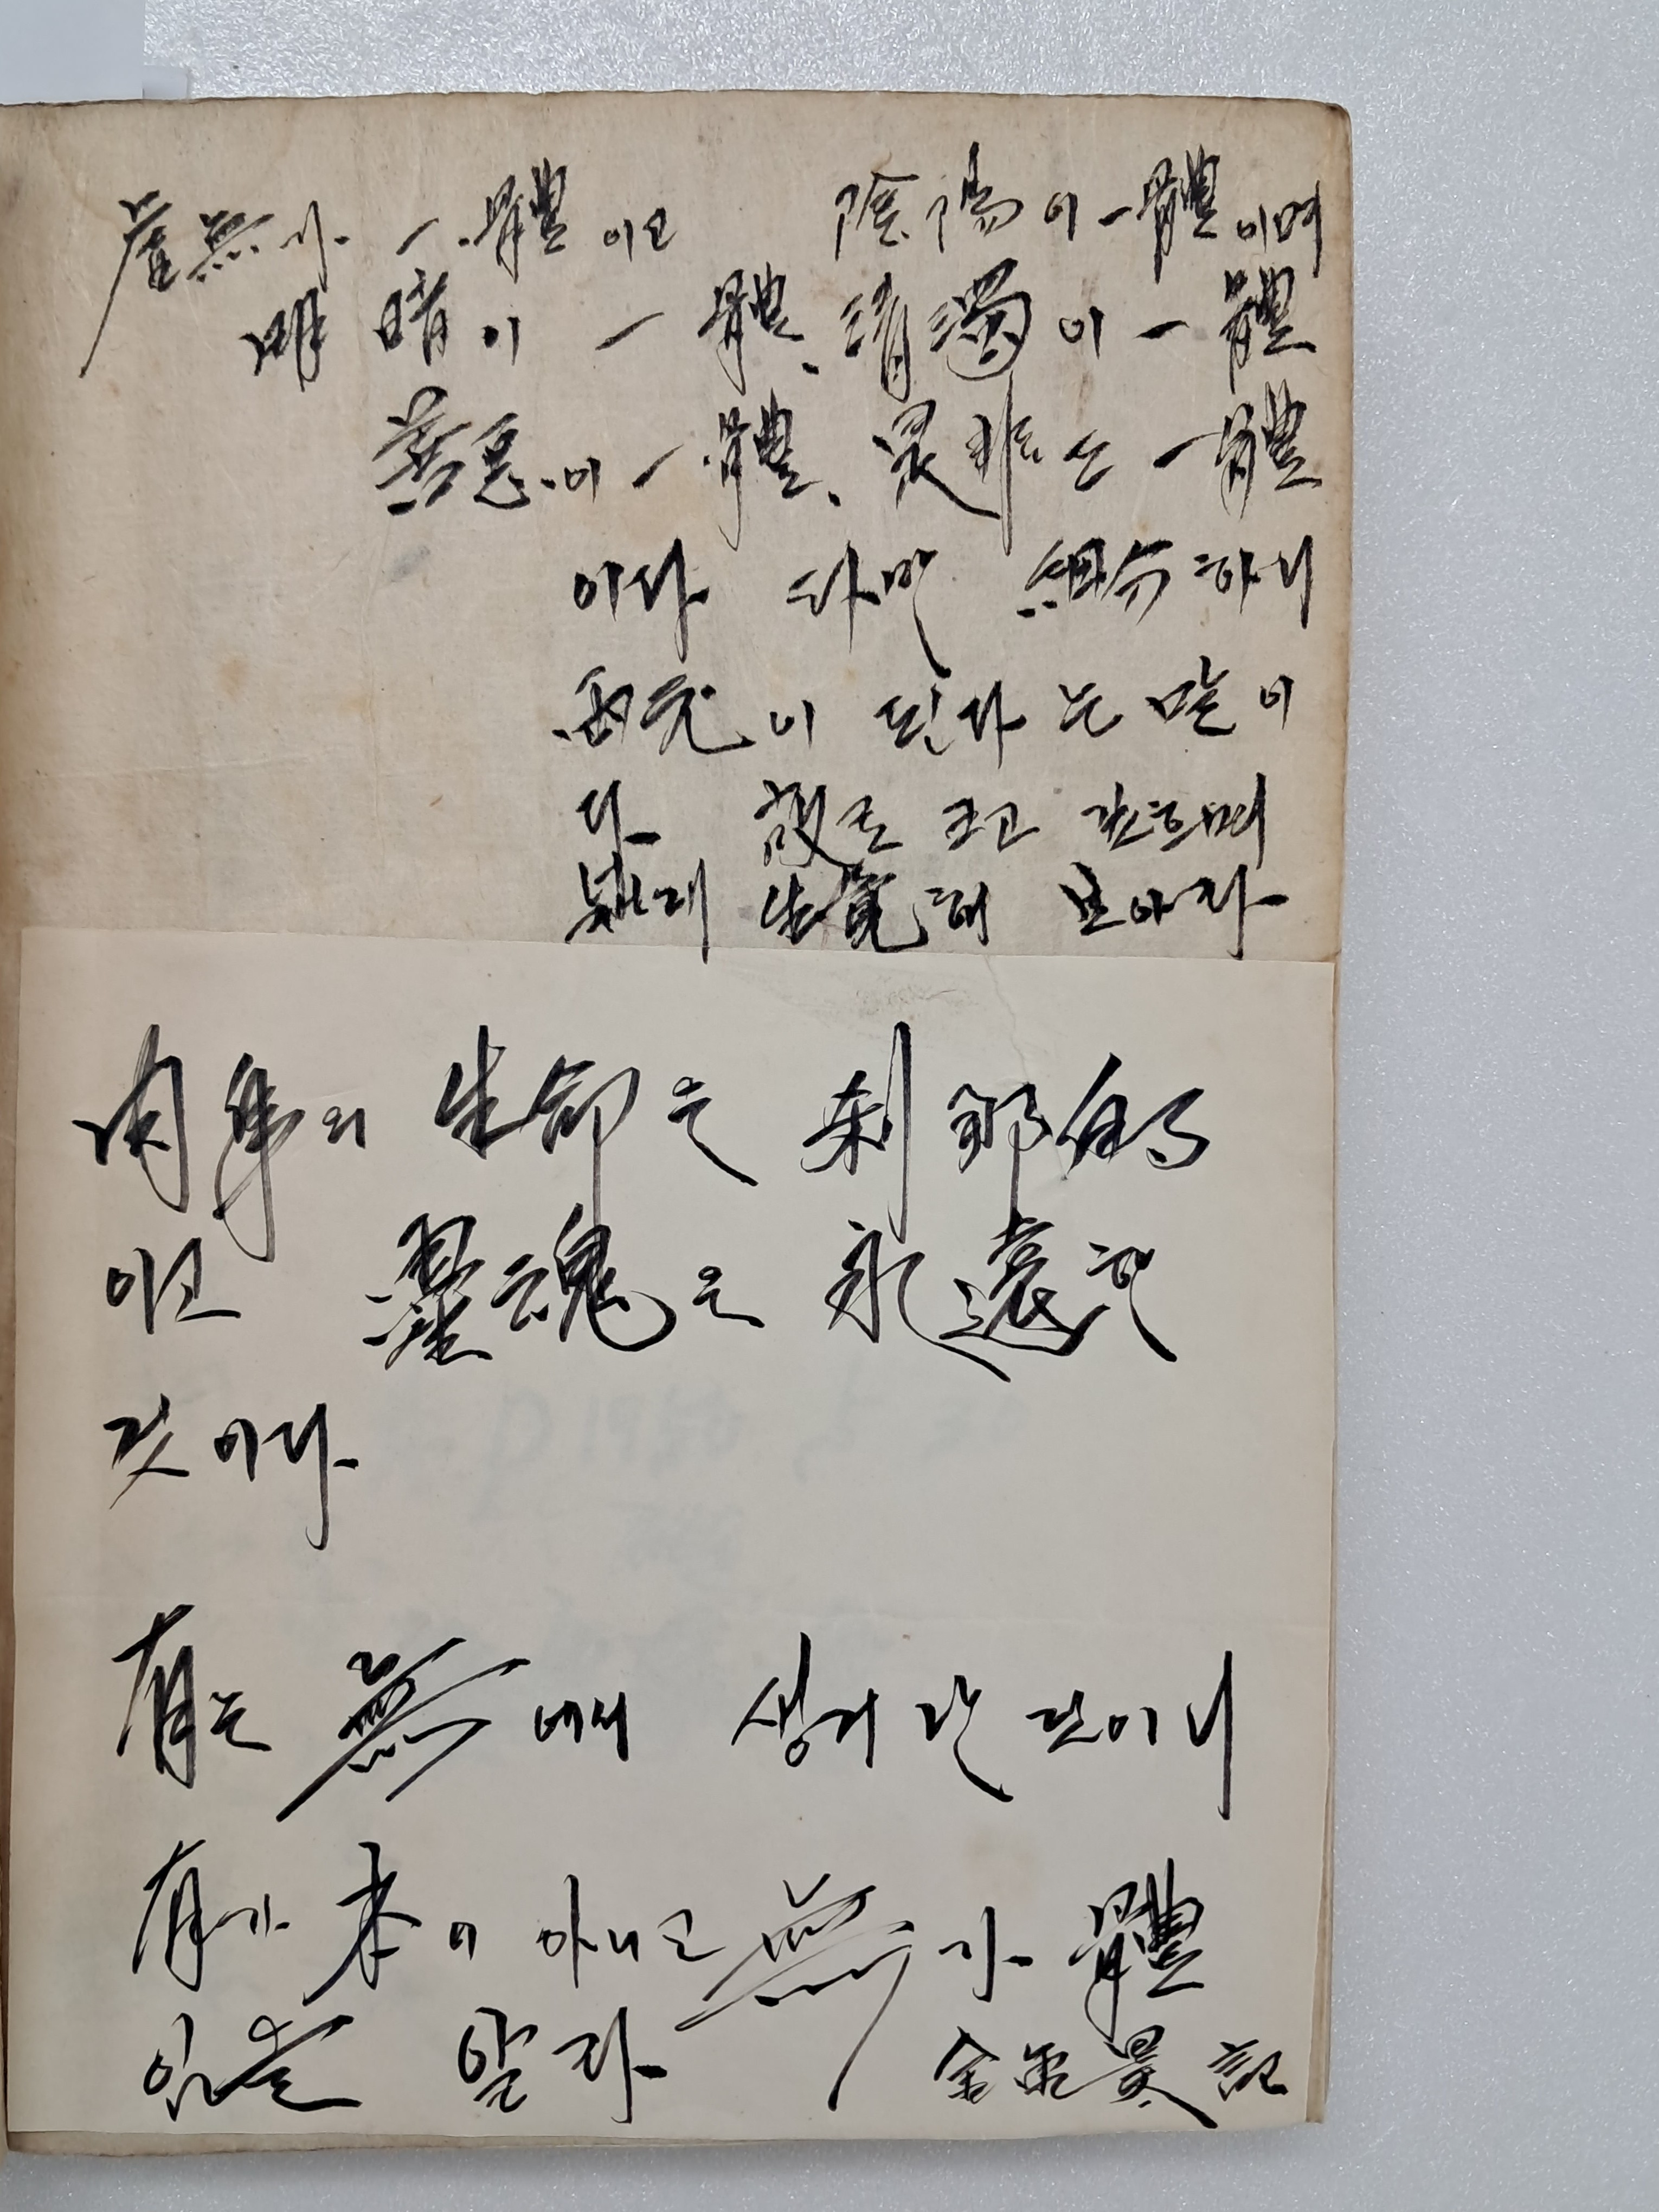 虛無가 一體이고 陰陽이 一體이며
明暗이 一體, 淸濁이 一體
善惡이 一體, 是非는 一體
이다 다만 細分하니
兩元이 된다는 말이
다
生覺해 보아라
肉身의 生命은 刹那的
이고 靈魂은 永遠한
것이다
有는 無에서 생겨난 것이니
有가 本이 아니고 無가 體
임을 알라
金 昊 記